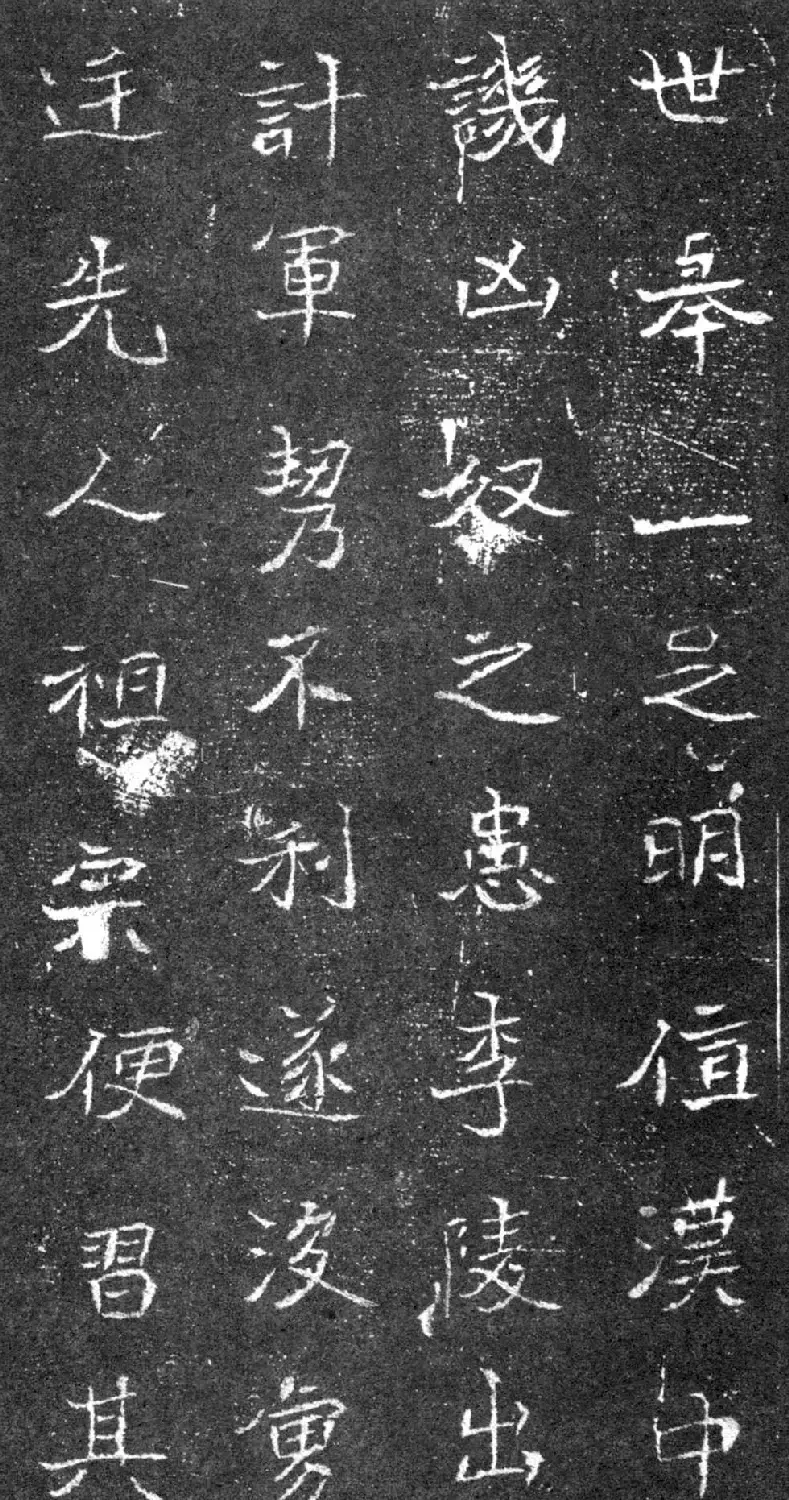 世一足明值漢中
譏凶奴之患李陵出
計軍勢不利遂沒虜
廷先人祖宗便習其